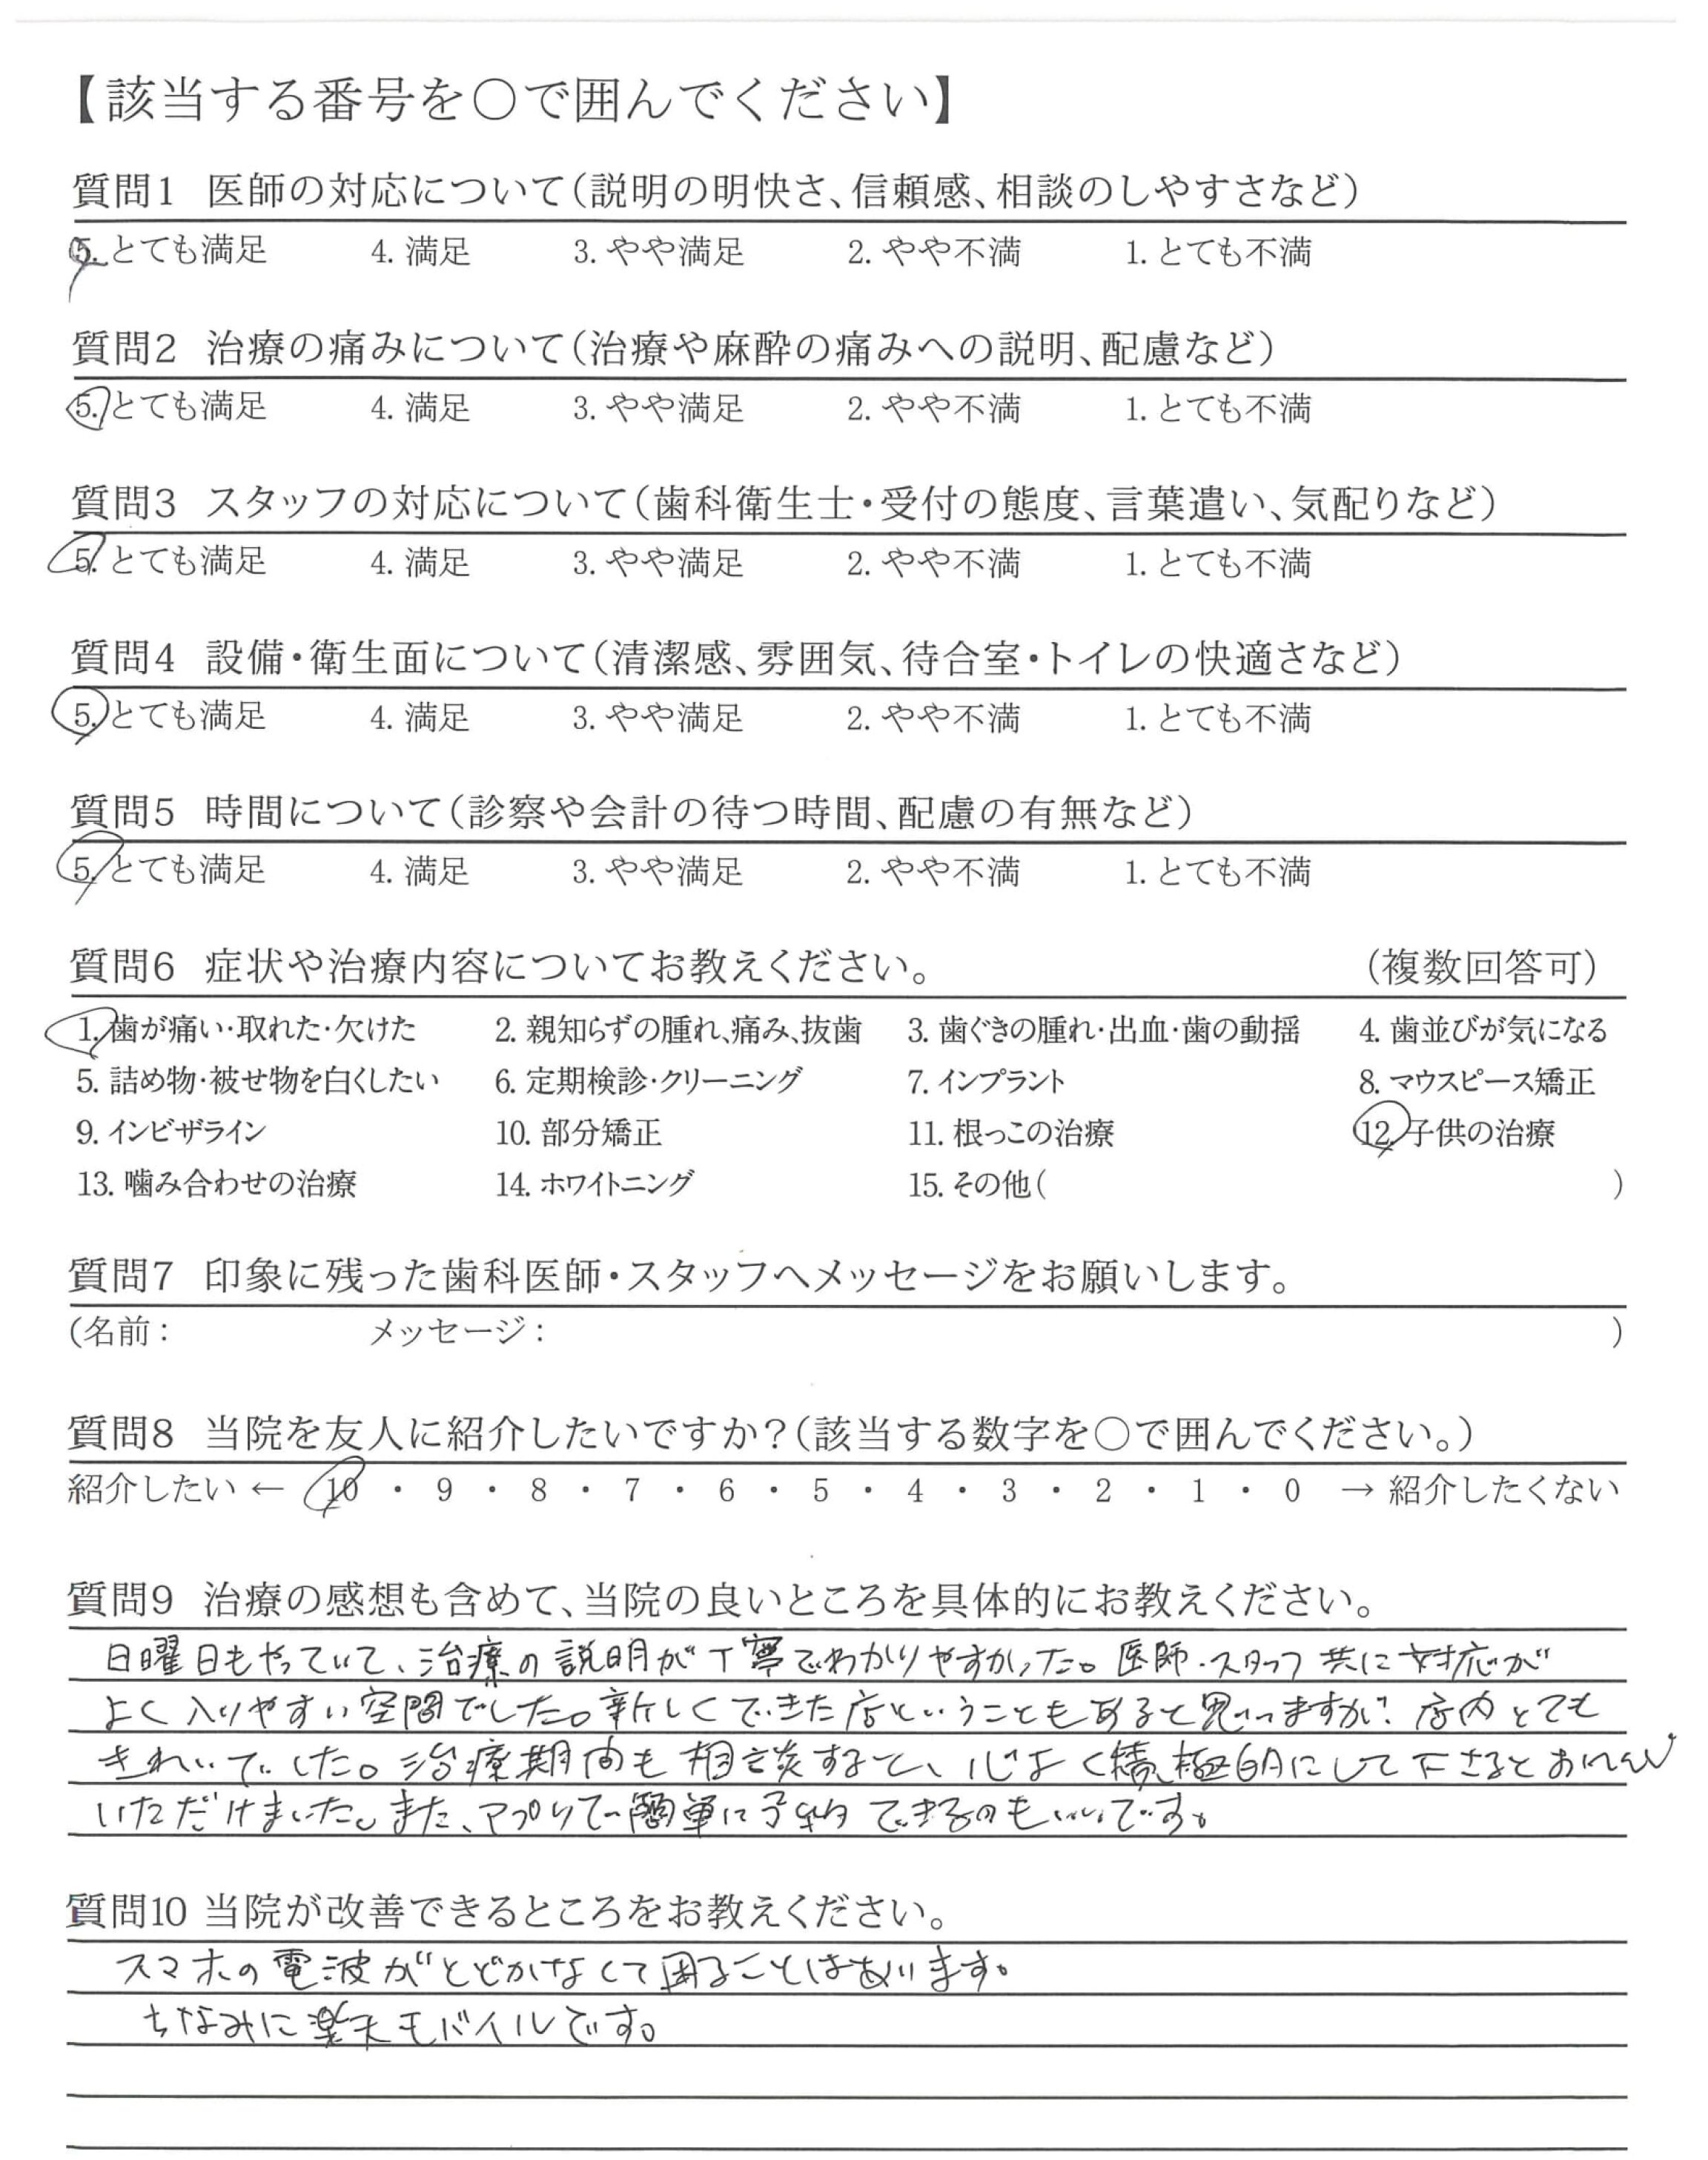 【該当する番号を○で囲んでください】
質問1 医師の対応について（説明の明快さ、信頼感、相談のしやすさなど）
5. とても満足 4. 満足 3. やや満足 2. やや不満 1. とても不満
質問2 治療の痛みについて（治療や麻酔の痛みへの説明、配慮など）
5. とても満足 4. 満足 3. やや満足 2. やや不満 1. とても不満
質問3 スタッフの対応について（歯科衛生士・受付の態度、言葉遣い、気配りなど）
5. とても満足 4. 満足 3. やや満足 2. やや不満 1. とても不満
質問4 設備・衛生面について（清潔感、雰囲気、待合室・トイレの快適さなど）
5. とても満足 4. 満足 3. やや満足 2. やや不満 1. とても不満
質問5 時間について（診察や会計の待つ時間、配慮の有無など）
5. とても満足 4. 満足 3. やや満足 2. やや不満 1. とても不満
質問6 症状や治療内容についてお教えください。 （複数回答可）
1. 歯が痛い・取れた・欠けた 2. 親知らずの腫れ、痛み、抜歯 3. 歯ぐきの腫れ・出血・歯の動揺 4. 歯並びが気になる
5. 詰め物・被せ物を白くしたい 6. 定期検診・クリーニング 7. インプラント 8. マウスピース矯正
9. インビザライン 10. 部分矯正 11. 根っこの治療 12. 子供の治療
13. 噛み合わせの治療 14. ホワイトニング 15. その他（ ）
質問7 印象に残った歯科医師・スタッフへメッセージをお願いします。
（名前： メッセージ： ）
質問8 当院を友人に紹介したいですか？（該当する数字を○で囲んでください。）
紹介したい ← 10 ・ 9 ・ 8 ・ 7 ・ 6 ・ 5 ・ 4 ・ 3 ・ 2 ・ 1 ・ 0 → 紹介したくない
質問9 治療の感想も含めて、当院の良いところを具体的にお教えください。
日曜日もやっていて、治療の説明が丁寧でわかりやすかった。医師・スタッフ共に対応が
よく入りやすい空間でした。新しくできた店ということもあると思いますが、店内とても
きれいでした。治療期間も相談すると、心よく積極的にして下さると
いただけました。また、アプリで簡単に予約できるのもいいです。
質問10 当院が改善できるところをお教えください。
スマホの電波がとどかなくて困ることはあります。
ちなみに楽天モバイルです。